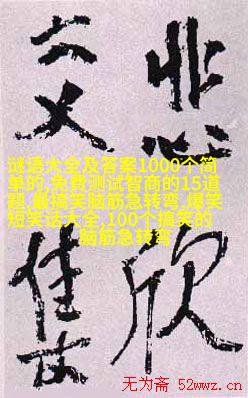 悲欣
交集
谜语大全及答案1000个简
单的,免费测试智商的15道
题,最搞笑脑筋急转弯,爆笑
短笑话大全,100个搞笑的
脑筋急转弯
无为斋 52wwz.cn